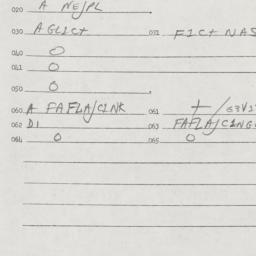 020 A NE/PL
030 AGLIC+ 031 FIC+ NAS
040 O
041 O
050 O
060 A FAFLA/CINK 061 + / S3V1
062 DI 063 FAFLA/CING
064 O 065 O